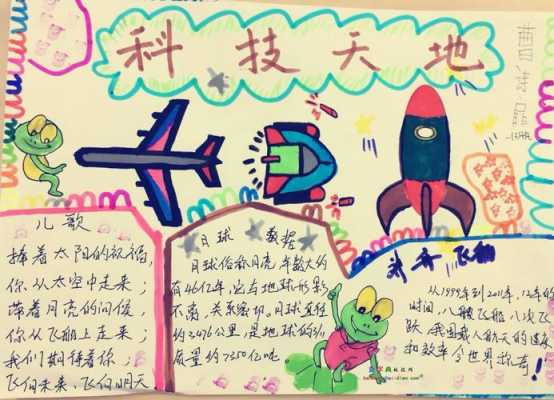 科技天地
儿歌
捧着太阳的祝福,
你从太空中走来;
带着月亮的问候,
你从飞船上走来;
我们期待着你;
飞向未来、飞向明天
月球数据
月球俗称月亮,年龄大约
有46亿年,它与地球形影
不离,关系密切,月球直径
约3476公里,是地球的3/11
质量约7350亿吨
神舟飞船
从1999年到2011年,12年的
时间,八艘飞船,八次飞
跃,我国载人航天的速度
和效率令世界惊奇!